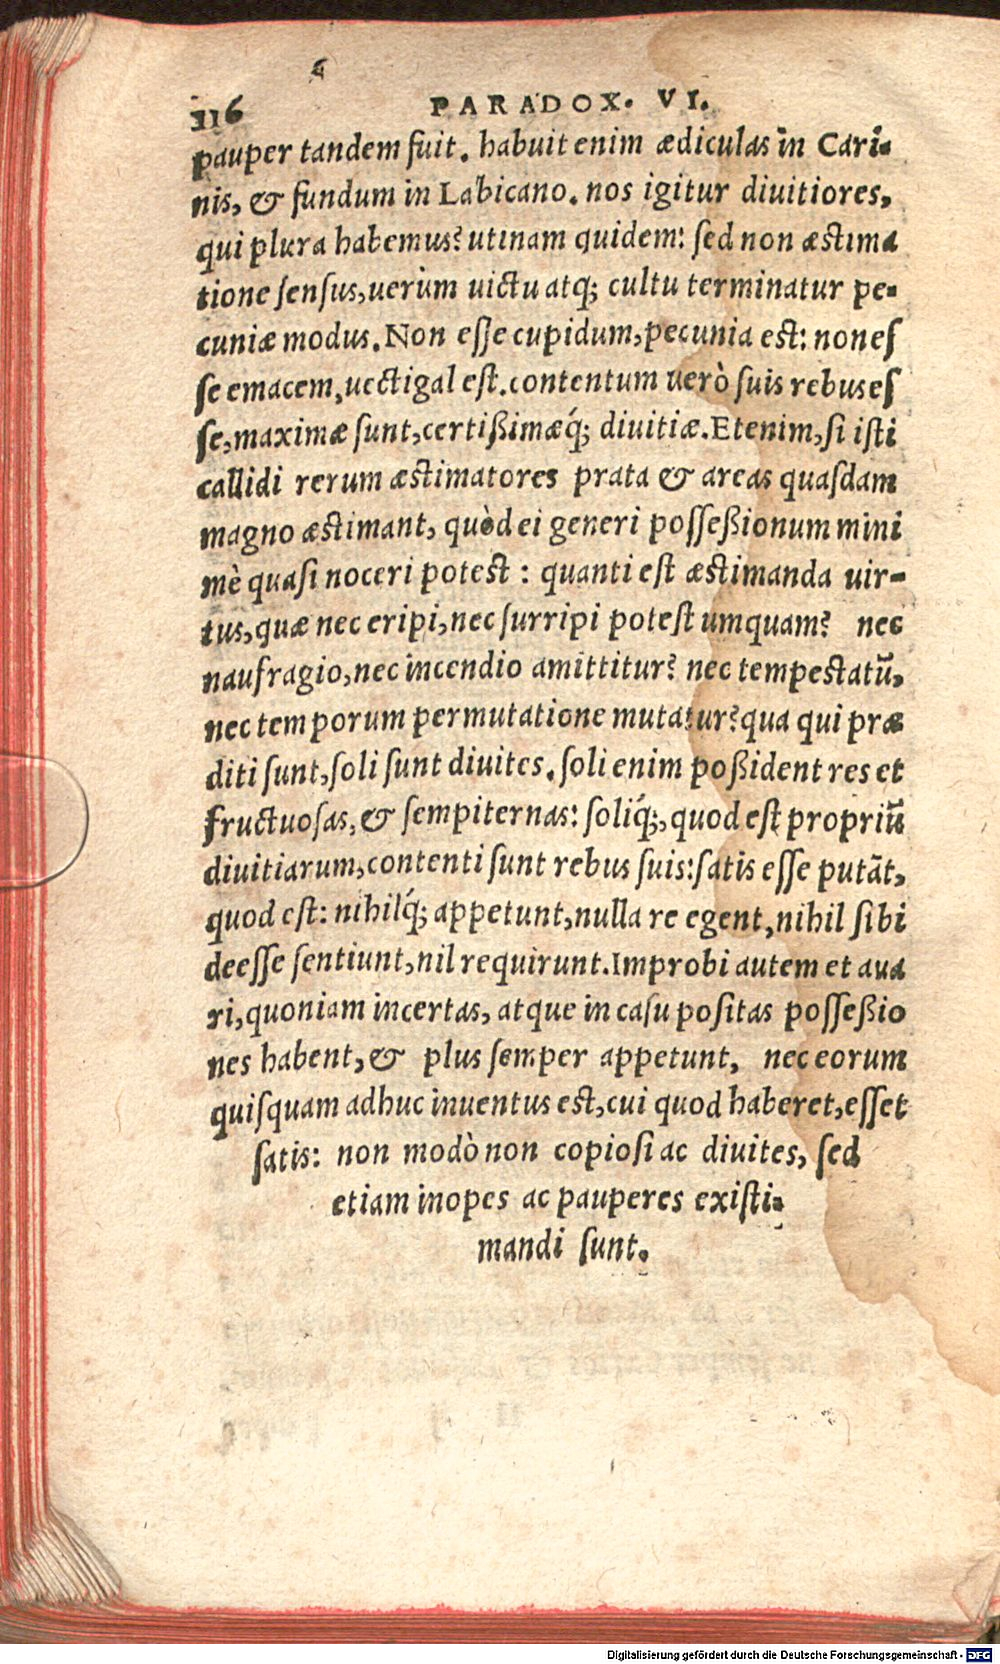 116 PARADOX. VI.
pauper tandem fuit. habuit enim ædiculas in Cari-
nis, & fundum in Labicano. nos igitur diuitiores,
qui plura habemus? utinam quidem: sed non æstima
tione sensus, uerùm uictu atq; cultu terminatur pe-
cuniæ modus. Non esse cupidum, pecunia est: non es
se emacem, uectigal est. contentum uerò suis rebus es
se, maximæ sunt, certißimæq́; diuitiæ. Etenim, si isti
callidi rerum æstimatores prata & areas quasdam
magno æstimant, quòd ei generi possessionum mini
mè quasi noceri potest : quanti est æstimanda uir-
tus, quæ nec eripi, nec surripi potest umquam? nec
naufragio, nec incendio amittitur? nec tempestatū,
nec temporum permutatione mutatur? qua qui præ
diti sunt, soli sunt diuites. soli enim poßident res et
fructuosas, & sempiternas: soliq́;, quod est propriū
diuitiarum, contenti sunt rebus suis: satis esse putāt,
quod est: nihilq́; appetunt, nulla re egent, nihil sibi
deesse sentiunt, nil requirunt. Improbi autem et aua
ri, quoniam incertas, atque in casu positas posseßio
nes habent, & plus semper appetunt, nec eorum
quisquam adhuc inuentus est, cui quod haberet, esset
satis: non modò non copiosi ac diuites, sed
etiam inopes ac pauperes existi-
mandi sunt.
Digitalisierung gefördert durch die Deutsche Forschungsgemeinschaft - DFG